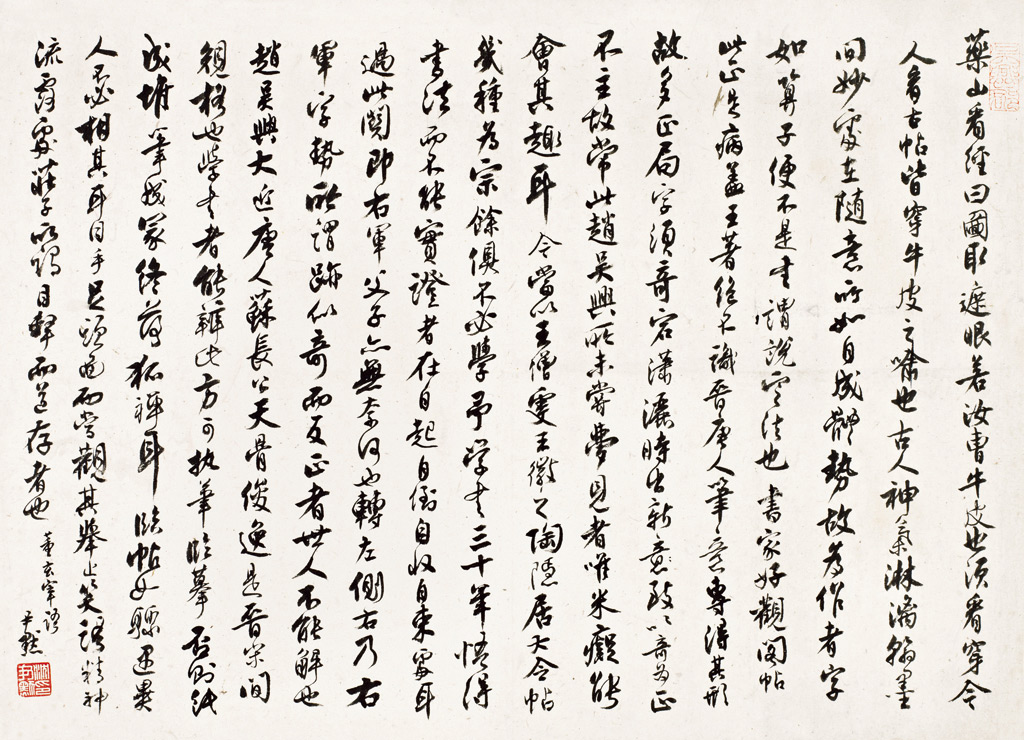 藥山看經曰圖取遮眼若汝曹牛皮也須看穿今
人看古帖皆穿牛皮之喻也古人神氣淋漓翰墨
間妙處在隨意所如自成體勢故為作者字
如算子便不是書謂說定法也書家好觀閣帖
此正是病蓋王著絕不識晉唐人筆意專得其形
故多正局字須奇宕瀟灑時出新意致以奇為正
不主故常此趙吳興所未嘗夢見者唯米癡能
會其趣耳今當以王僧虔王徽之陶隱居大令帖
幾種為宗餘俱不必學予學書三十年悟得
書法而不能實證者在自起自倒自收自束處耳
過此關即右軍父子亦無奈何也轉左側右乃右
軍字勢所謂跡似奇而反正者世人不能解也
趙吳興大近唐人蘇長公天骨俊逸是晉宋間
規格也學書者能辨此方可執筆臨摹否則紙
成堆筆成冢終落狐禪耳臨帖如驟遇異
人不必相其耳目手足頭面而當觀其舉止笑語精神
流露處莊子所謂目擊而道存者也 董玄宰語
尹默